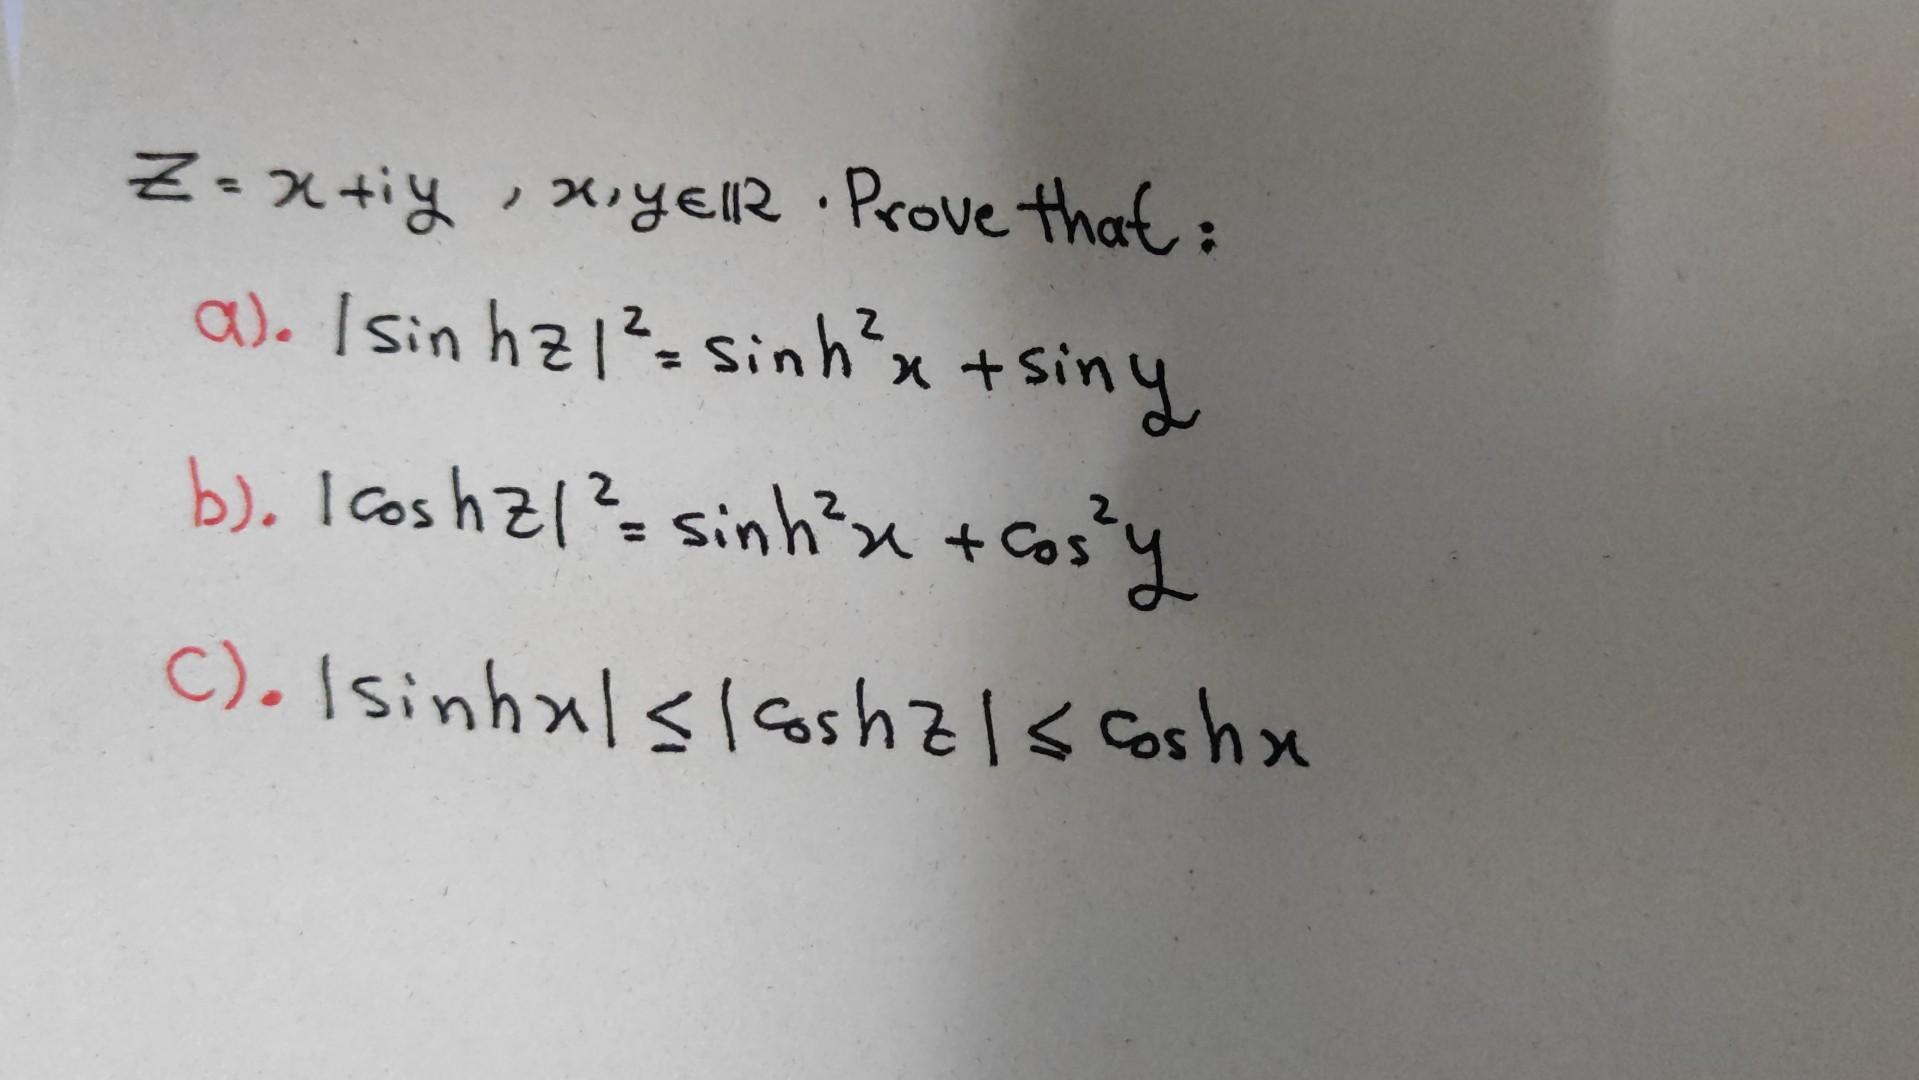 Z = x + iy , x, y ∈ ℝ . Prove that :
a). |sin hz|² = sinh²x + sin y
b). |cos hz|² = sinh²x + cos²y
c). |sinhx| ≤ |coshz| ≤ coshx